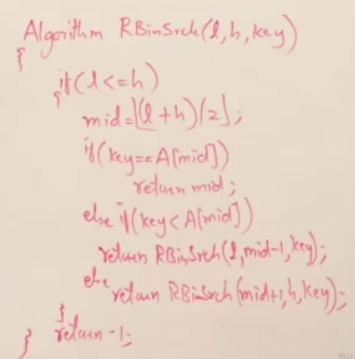 Algorithm RBinSrch(l,h,key)
{
if(l<=h)
{
mid=⌊(l+h)/2⌋;
if(key==A[mid])
return mid;
else if(key<A[mid])
return RBinSrch(l,mid-1,key);
else
return RBinSrch(mid+1,h,key);
}
return -1;
}